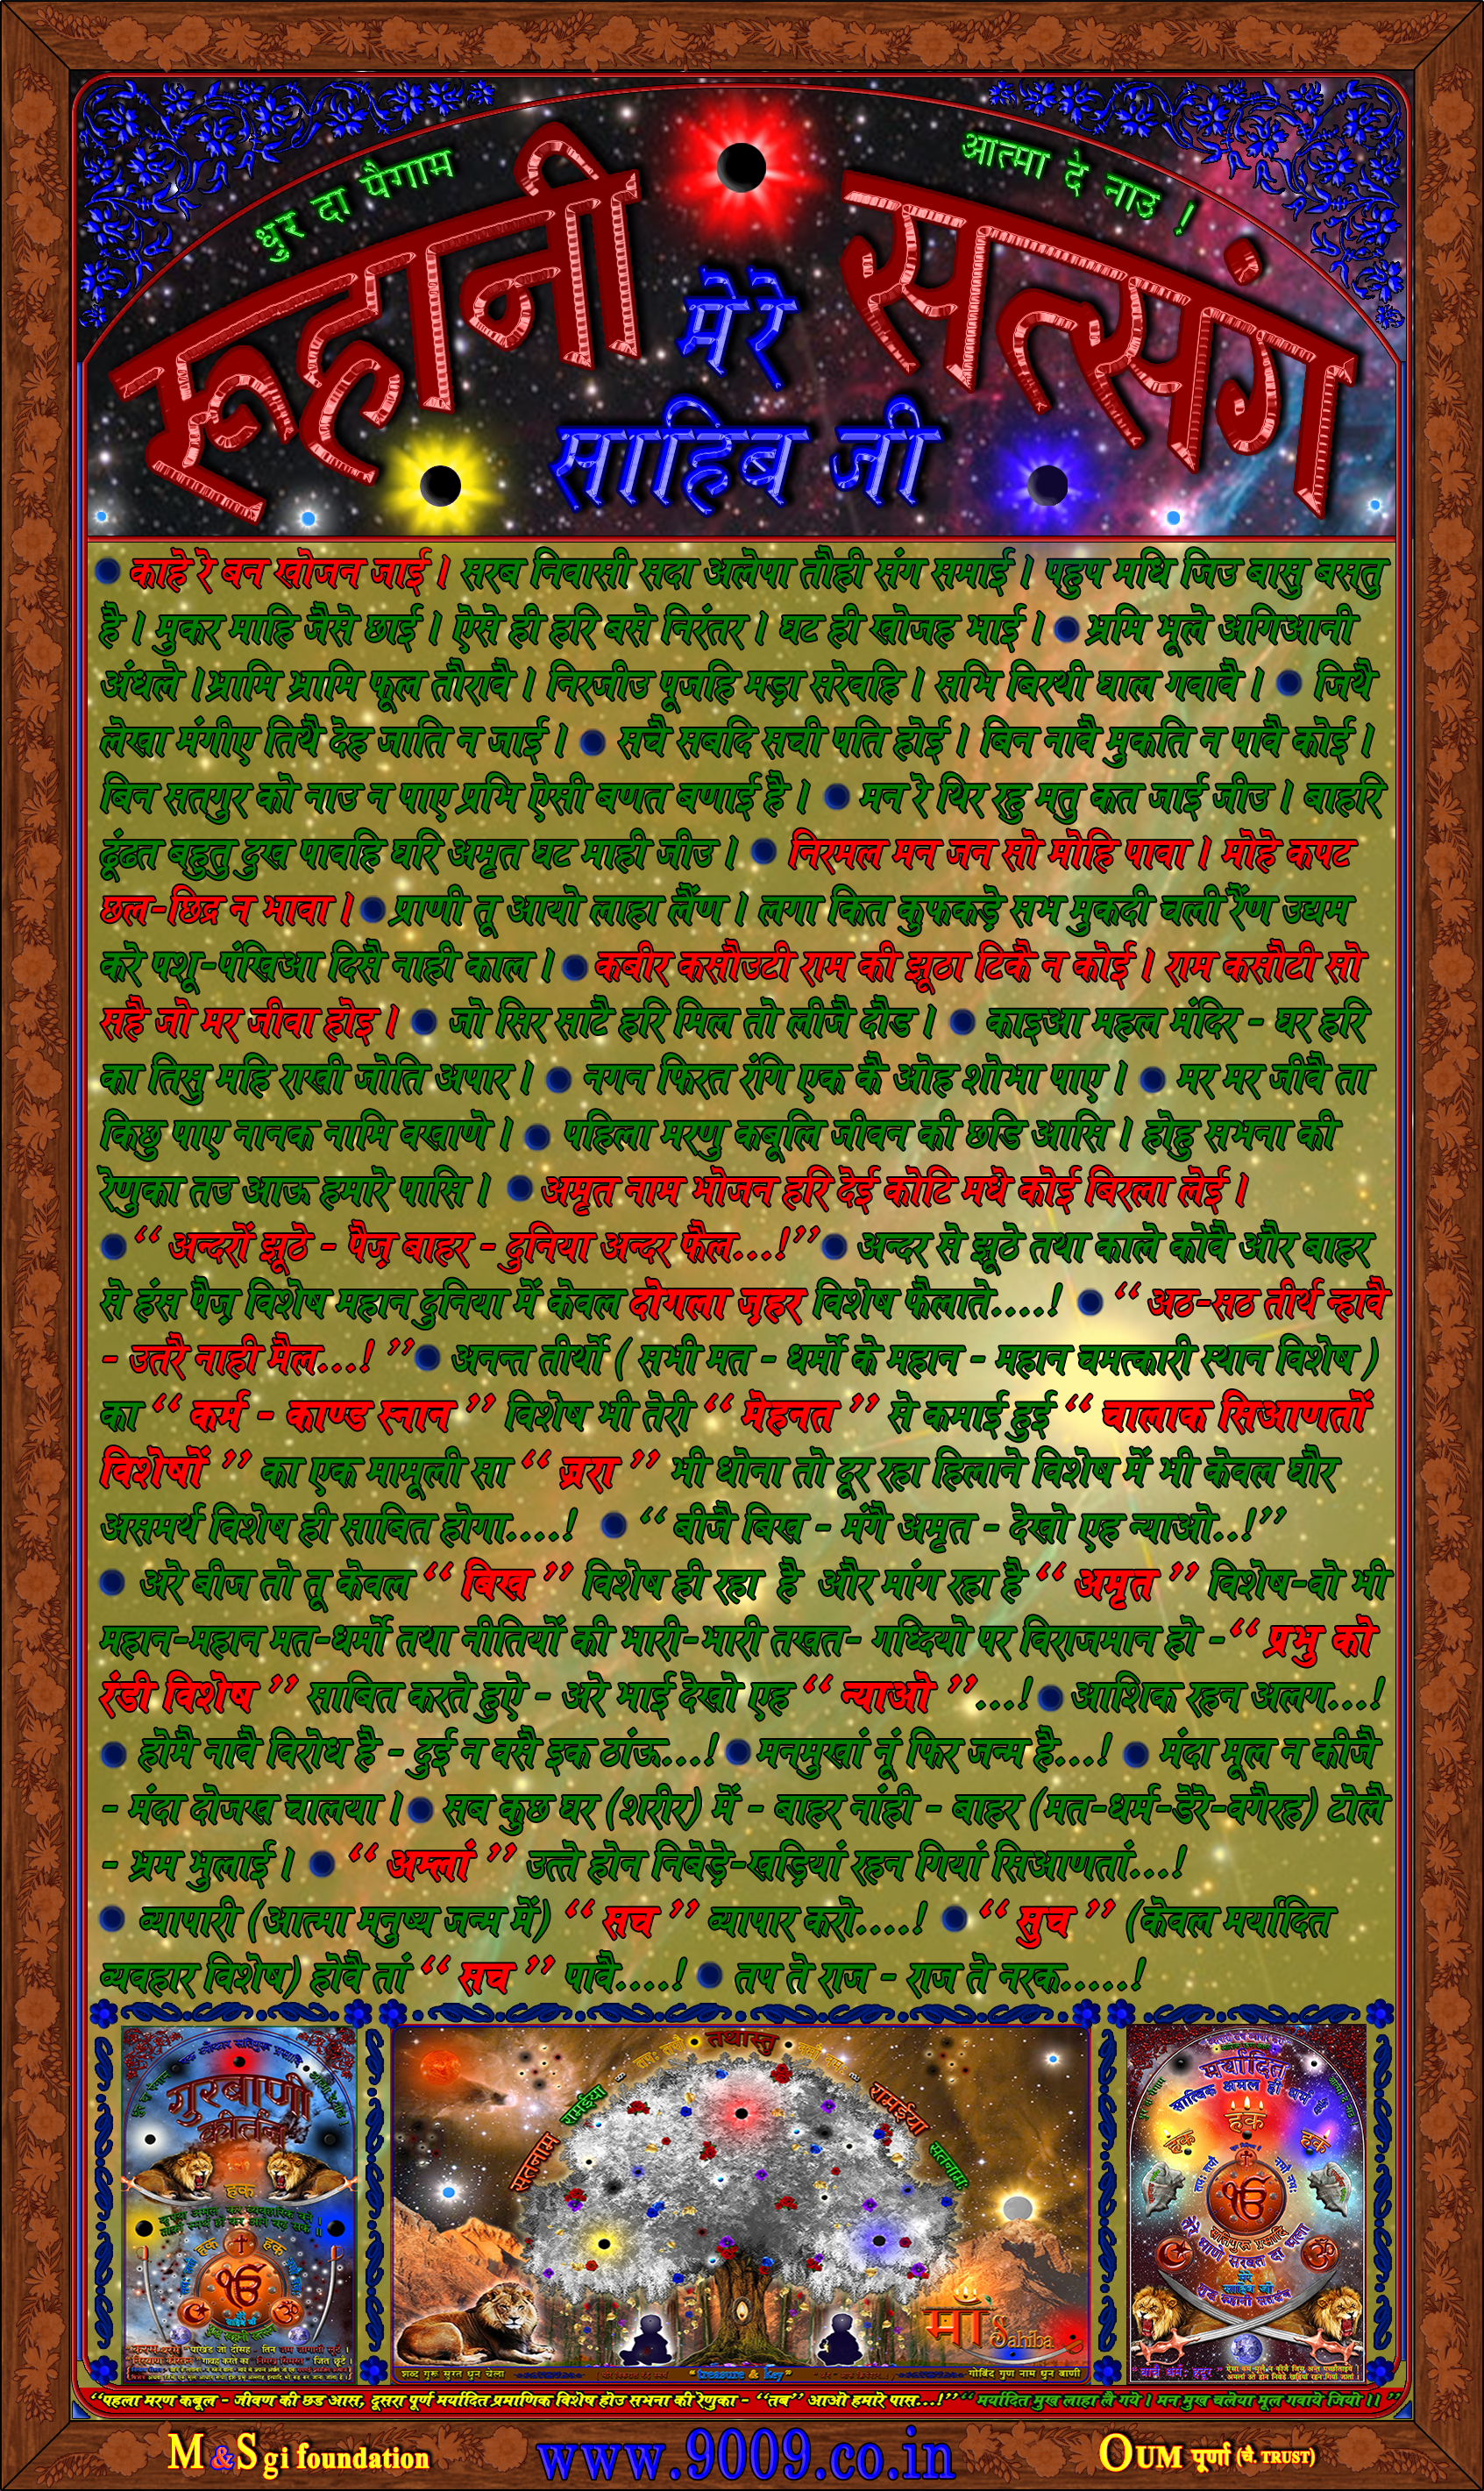 धुर दा पैगाम
आत्मा दे नाउ !
रूहानी सत्संग
मेरे
साहिब जी
काहे रे बन खोजन जाई । सरब निवासी सदा अलेपा तौही संग समाई । पहुप मधि जिउ बासु बसतु
है । मुकर माहि जैसे छाई । ऐसे ही हरि बसे निरंतर । घट ही खोजह भाई । भ्रमि भूले अगिआनी
अंधले ।भ्रामि भ्रामि फूल तौरावै । निरजीउ पूजहि मड़ा सरेवहि । सभि बिरथी घाल गवावै । जिथै
लेखा मंगीए तिथै देह जाति न जाई । सचै सबदि सची पति होई । बिन नावै मुकति न पावै कोई ।
बिन सतगुर को नाउ न पाए प्रभि ऐसी बणत बणाई है । मन रे थिर रहु मतु कत जाई जीउ । बाहरि
ढूंढत बहुतु दुख पावहि घरि अमृत घट माही जीउ । निरमल मन जन सो मोहि पावा । मोहे कपट
छल-छिद्र न भावा । प्राणी तू आयो लाहा लैंण । लगा कित कुफकड़े सभ मुकदी चली रैंण उद्यम
करे पशू-पंखिआ दिसै नाही काल । कबीर कसौउटी राम की झूठा टिकै न कोई । राम कसौटी सो
सहै जो मर जीवा होइ । जो सिर साटै हरि मिल तो लीजै दौड । काइआ महल मंदिर - घर हरि
का तिसु महि राखी जोति अपार । नगन फिरत रंगि एक कै ओह शोभा पाए । मर मर जीवै ता
किछु पाए नानक नामि वखाणे । पहिला मरणु कबूलि जीवन की छडि आसि । होहु सभना की
रेणुका तउ आऊ हमारे पासि । अमृत नाम भोजन हरि देई कोटि मधे कोई बिरला लेई ।
“ अन्दरों झूठे - पैज़ बाहर - दुनिया अन्दर फैल...!” अन्दर से झूठे तथा काले कोवै और बाहर
से हंस पैज़ विशेष महान दुनिया में केवल दोगला ज़हर विशेष फैलाते....! “ अठ-सठ तीर्थ न्हावै
- उतरै नाही मैल...! ” अनन्त तीर्थो ( सभी मत - धर्मो के महान - महान चमत्कारी स्थान विशेष )
का “ कर्म - काण्ड स्नान ” विशेष भी तेरी “ मेहनत ” से कमाई हुई “ चालाक सिआणतों
विशेषों ” का एक मामूली सा “ ज़रा ” भी धोना तो दूर रहा हिलाने विशेष में भी केवल घौर
असमर्थ विशेष ही साबित होगा....! “ बीजै बिख - मंगै अमृत - देखो एह न्याओ..!”
अरे बीज तो तू केवल “ बिख ” विशेष ही रहा है और मांग रहा है “ अमृत ” विशेष-वो भी
महान-महान मत-धर्मो तथा नीतियों की भारी-भारी तखत- गध्दियो पर विराजमान हो -“ प्रभु को
रंडी विशेष ” साबित करते हुऐ - अरे भाई देखो एह “ न्याओ ”...! आशिक रहन अलग...!
होमै नावै विरोध है - दुई न वसै इक ठांऊ...! मनमुखां नूं फिर जन्म है...! मंदा मूल न कीजै
- मंदा दोजख चालया । सब कुछ घर (शरीर) में - बाहर नांही - बाहर (मत-धर्म-डेरे-वगैरह) टोलै
- भ्रम भुलाई । “ अम्लां ” उत्ते होन निबेड़े-खड़ियां रहन गियां सिआणतां...!
व्यापारी (आत्मा मनुष्य जन्म में) “ सच ” व्यापार करो....! “ सुच ” (केवल मर्यादित
व्यवहार विशेष) होवै तां “ सच ” पावै....! तप ते राज - राज ते नरक......!
गुरबाणी
कीर्तन
हक
हक हक
तथास्तु
सतनाम रामईया रामईया सतनामः
माँ Sahiba
शब्द गुरु सुरत धुन चेला
“treasure & key”
गोबिंद गुण नाम धुन बाणी
मर्यादित
सात्विक अमल ही धर्म
हक
हक हक
मेरे
साहिब जी
“पहला मरण कबूल - जीवण की छड आस, दूसरा पूर्ण मर्यादित प्रमाणिक विशेष होउ सभना की रेणुका - “तब” आओ हमारे पास...!” “ मर्यादित मुख लाहा लै गये । मन मुख चलेया मूल गवाये जियो ।। ”
M&Sgi foundation
www.9009.co.in
OUM पूर्णा (चै. TRUST)